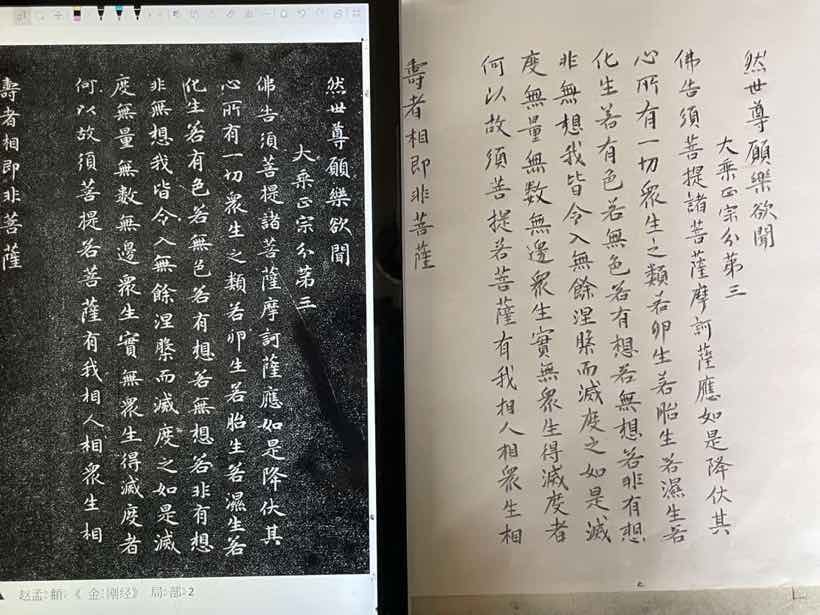 然世尊願樂欲聞
大乘正宗分第三
佛告須菩提諸菩薩摩訶薩應如是降伏其
心所有一切衆生之類若卵生若胎生若濕生若
化生若有色若無色若有想若無想若非有想
非無想我皆令入無餘涅槃而滅度之如是滅
度無量無數無邊衆生實無衆生得滅度者
何以故須菩提若菩薩有我相人相衆生相
壽者相即非菩薩
赵孟:頫:《 金:刚经》 局:部:2
然世尊願樂欲聞
大乘正宗分第三
佛告須菩提諸菩薩摩訶薩應如是降伏其
心所有一切衆生之類若卵生若胎生若濕生若
化生若有色若無色若有想若無想若非有想
非無想我皆令入無餘涅槃而滅度之如是滅
度無量無數無邊衆生實無衆生得滅度者
何以故須菩提若菩薩有我相人相衆生相
壽者相即非菩薩